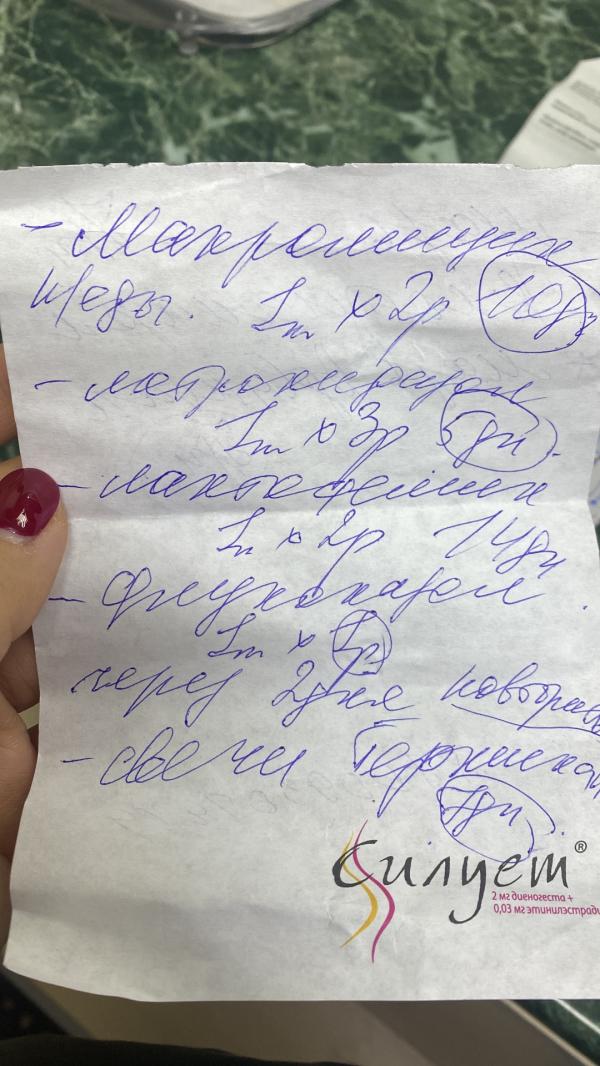 - Макромицин
п/еды. 1т х 2р 10дн
- метронидазол
1т х 3р 5дн.
- лактофемин
1т х 2р 14дн
- флуконазол.
1т х 1р
через 2дня повторить
- свечи Тержинан
7дн
Силует®
2 мг диеногеста +
0,03 мг этинилэстради